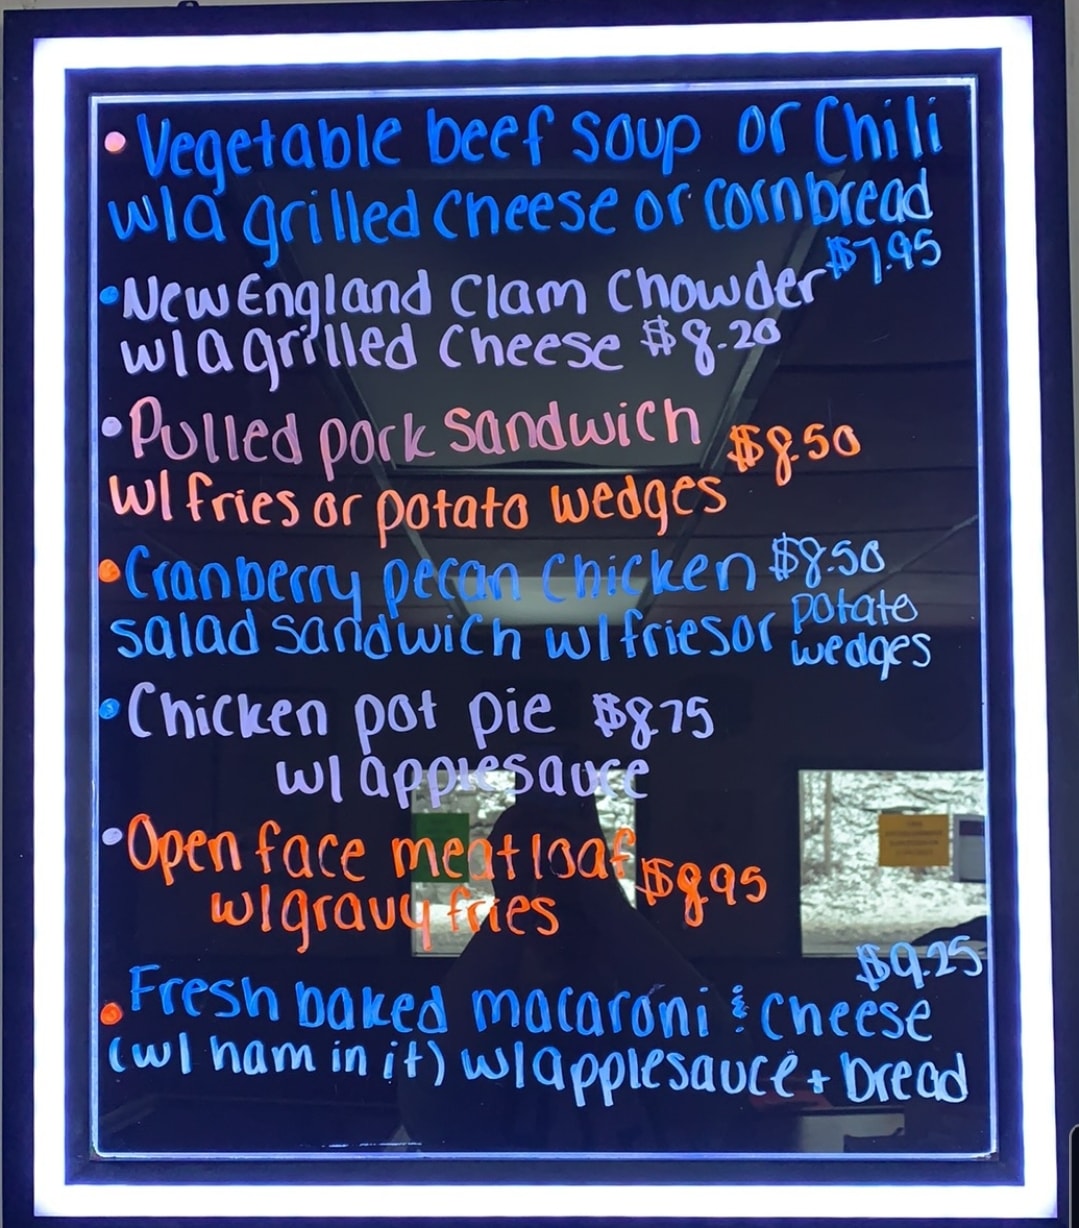 • Vegetable beef soup or Chili
w/a grilled cheese or cornbread
$7.95
• New England Clam Chowder
w/a grilled cheese $8.20
• Pulled pork sandwich
$8.50
w/ fries or potato wedges
• Cranberry pecan chicken $8.50
salad sandwich w/ fries or potato
wedges
• Chicken pot pie $8.75
w/ applesauce
• Open face meatloaf $8.95
w/gravy fries
$9.25
• Fresh baked macaroni & cheese
(w/ ham in it) w/applesauce + bread